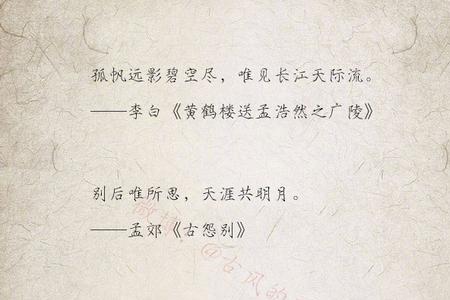 孤帆远影碧空尽，唯见长江天际流。
——李白《黄鹤楼送孟浩然之广陵》
别后唯所思，天涯共明月。
——孟郊《古怨别》
@古风的